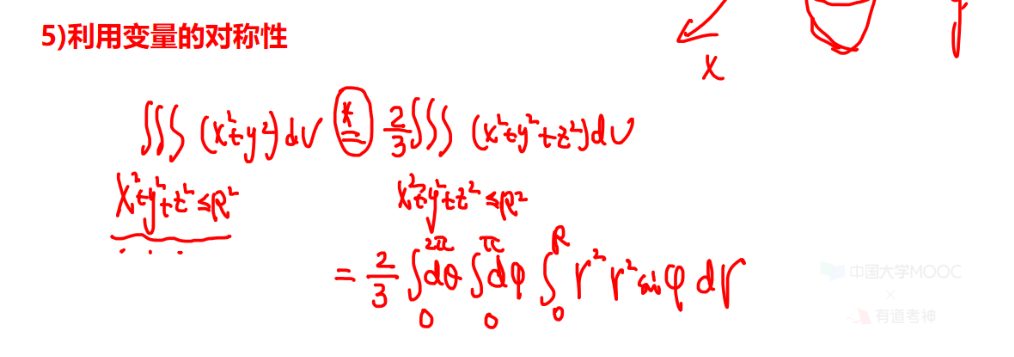 5)利用变量的对称性
x
y
∭ (x²+y²)dv * = 2/3 ∭ (x²+y²+z²)dv
x²+y²+z²≤R² x²+y²+z²≤R²
= 2/3 ∫₀^2π dθ ∫₀^π dφ ∫₀^R r² r² sinφ dr
中国大学MOOC
×
有道考神